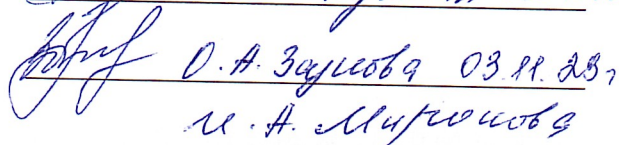 О.А. Заукова 03.11.23г
И.А. Миронова